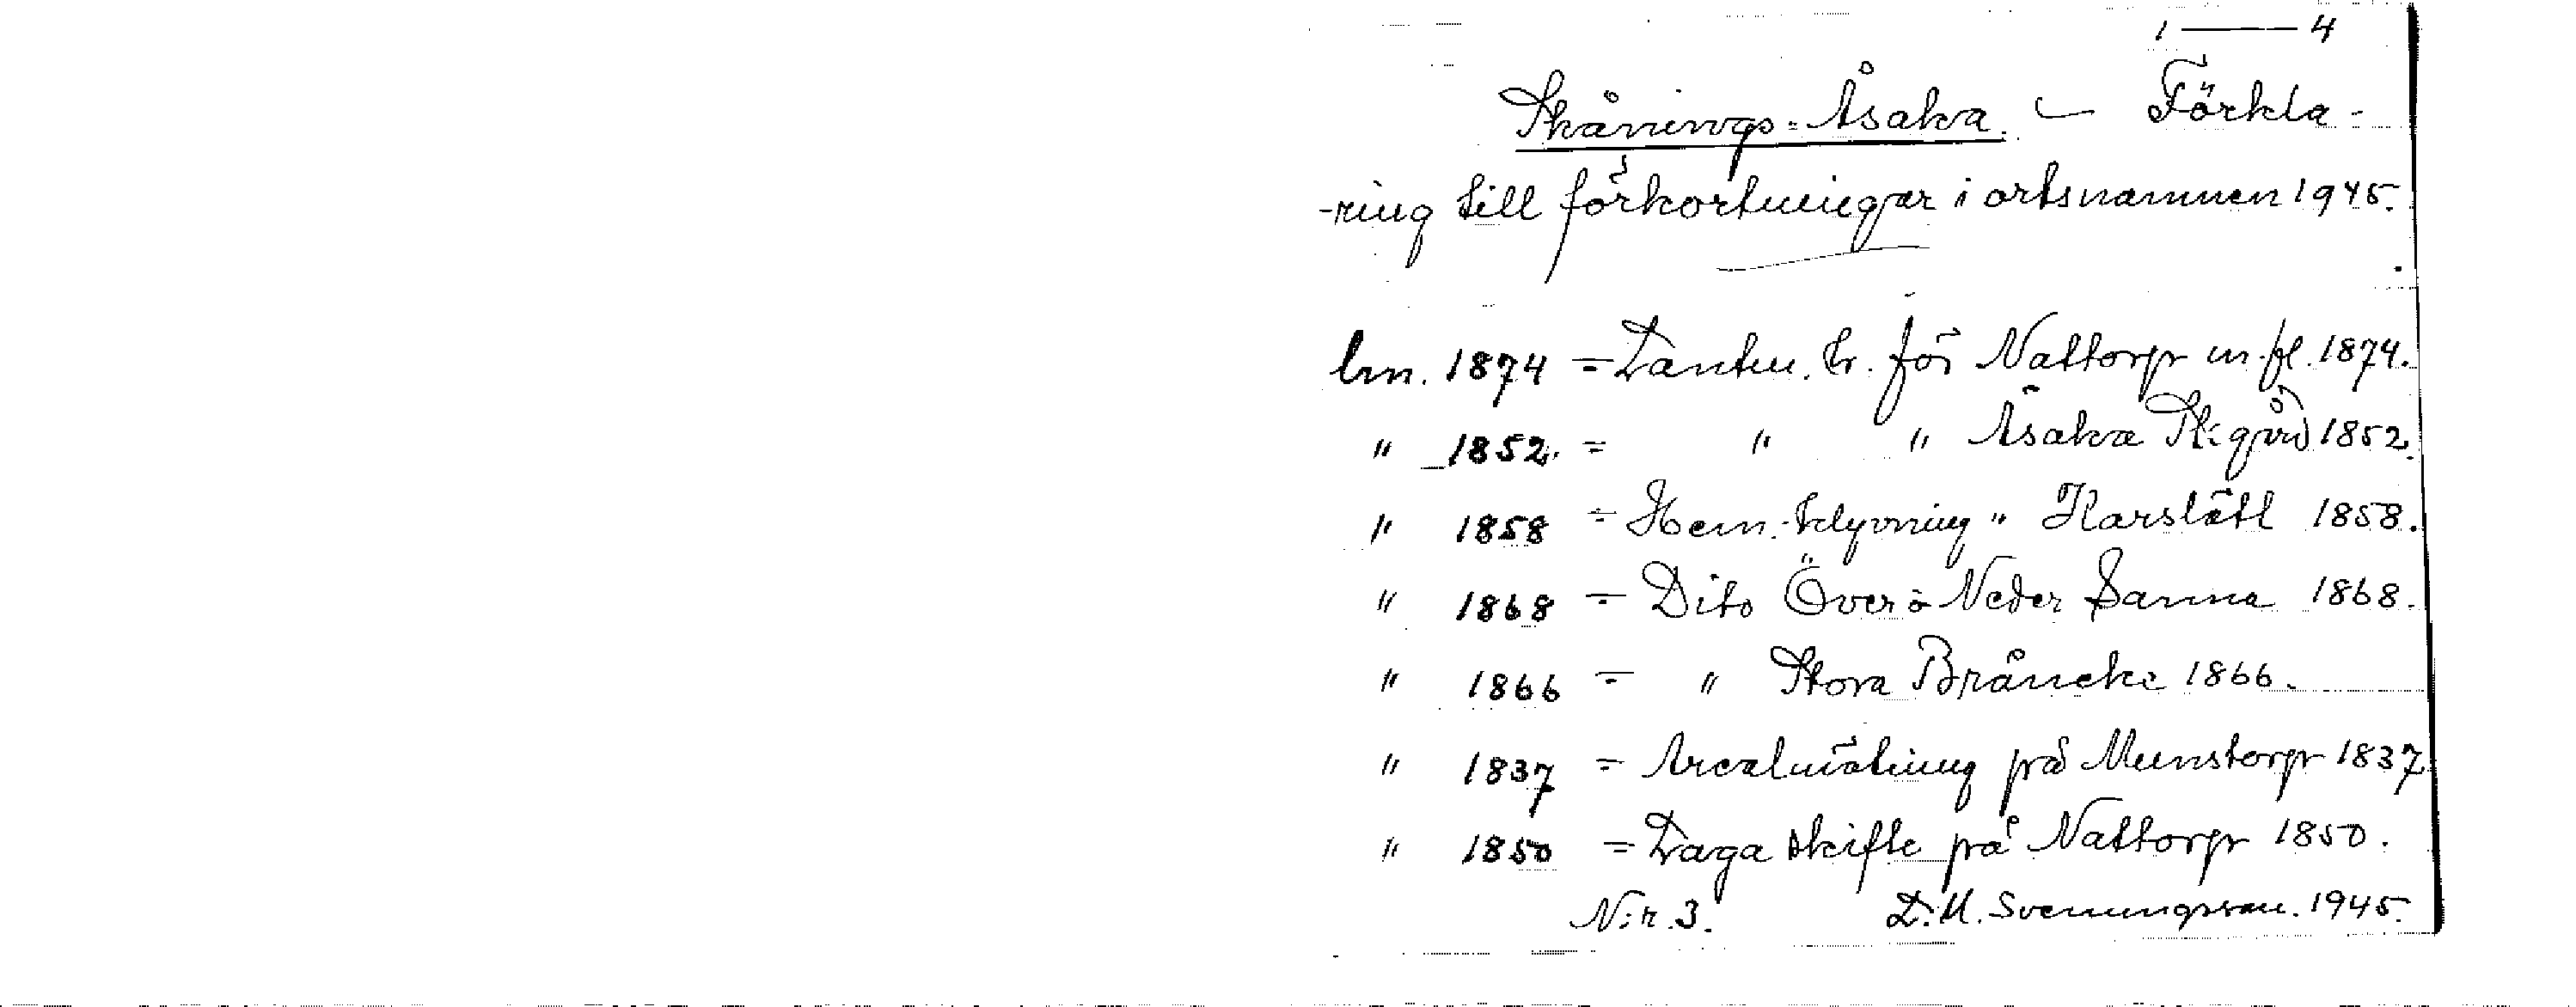 1 — 4
Skånings-Åsaka. — Förkla-
-ring till förkortningar i ortsnamnen 1945.
lm. 1874 = Lantm. tr. för Nattorp m.fl. 1874.
" 1852. = " " Åsaka Skgård 1852.
" 1858 = Hem. klyvning " Karslätt 1858.
" 1868 = Dito Över o Neder Sanna 1868.
" 1866 = " Stora Bråneke 1866.
" 1837 = Arealmätning på Munstorp 1837
" 1850 = Laga skifte på Nattorp 1850.
N:r. 3. L. M. Svenungsson. 1945.